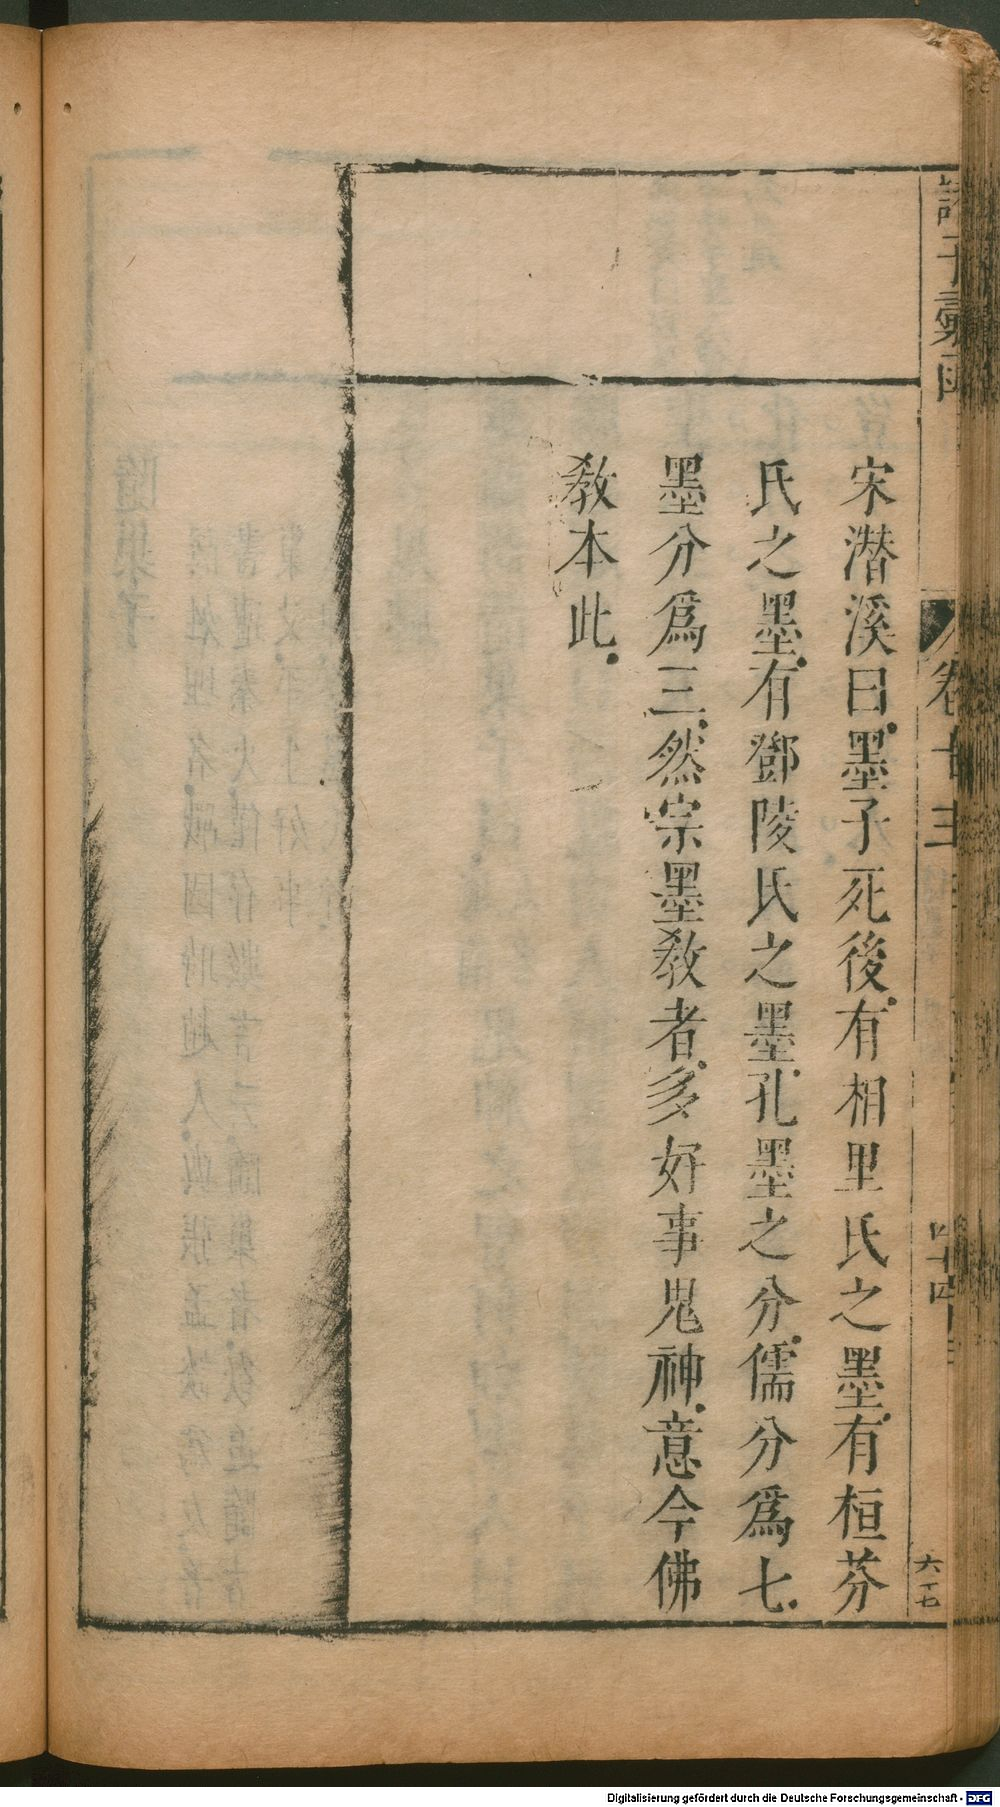 諸子彙函
卷十三
四十四
六十七
宋潛溪曰墨子死後有相里氏之墨有桓芬
氏之墨有鄧陵氏之墨孔墨之分儒分爲七
墨分爲三然宗墨教者多好事鬼神意今佛
教本此
Digitalisierung gefördert durch die Deutsche Forschungsgemeinschaft - DFG